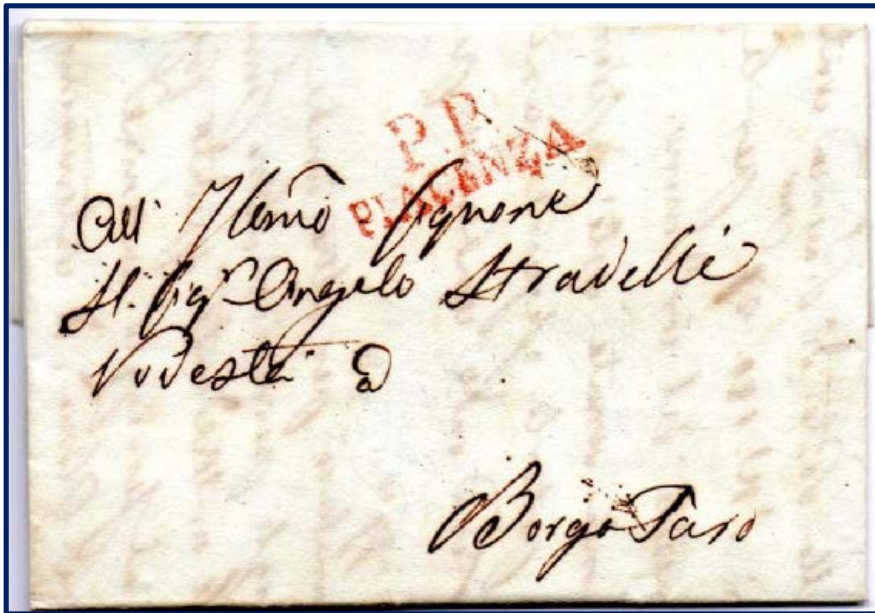 P.P.
PIACENZA
All' Illmõ Signore
Il Sigr Angelo Stradelli
Podestà a
Borgo Taro